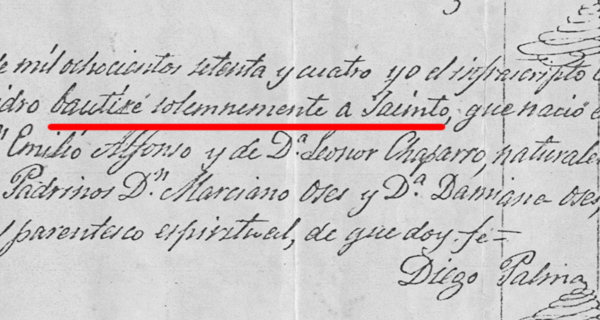 de mil ochocientos setenta y cuatro yo el infrascripto
idro bautizé solemnemente a Jacinto, que nació
Emilio Alfonso y de D.ª Leonor Chaparro, naturale
Padrinos D.n Marciano Oses y D.ª Damiana Oses,
parentesco espiritual, de que doy fé=
Diego Palma